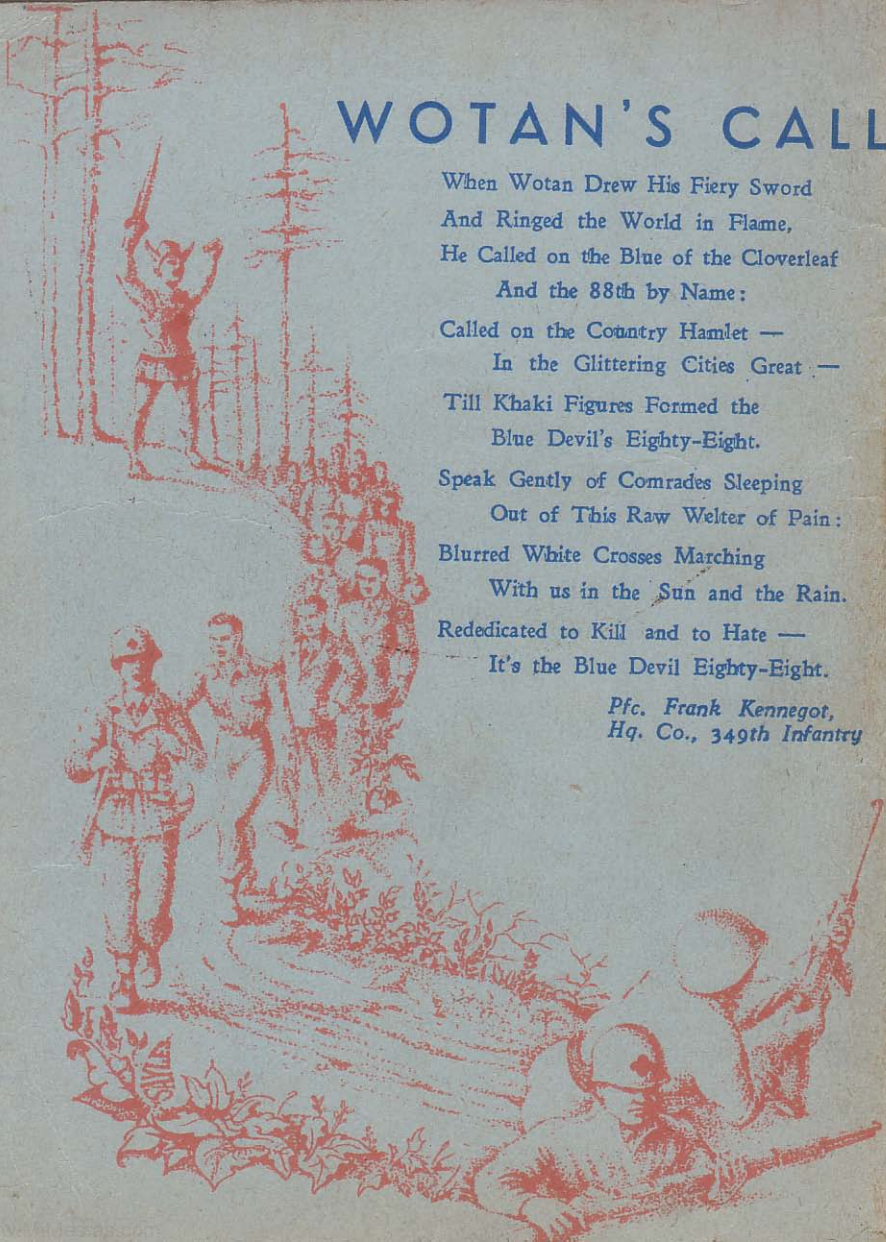 WOTAN'S CALL
When Wotan Drew His Fiery Sword
And Ringed the World in Flame,
He Called on the Blue of the Cloverleaf
And the 88th by Name:
Called on the Country Hamlet —
In the Glittering Cities Great —
Till Khaki Figures Formed the
Blue Devil's Eighty-Eight.
Speak Gently of Comrades Sleeping
Out of This Raw Welter of Pain:
Blurred White Crosses Marching
With us in the Sun and the Rain.
Rededicated to Kill and to Hate —
It's the Blue Devil Eighty-Eight.
Pfc. Frank Kennegot,
Hq. Co., 349th Infantry